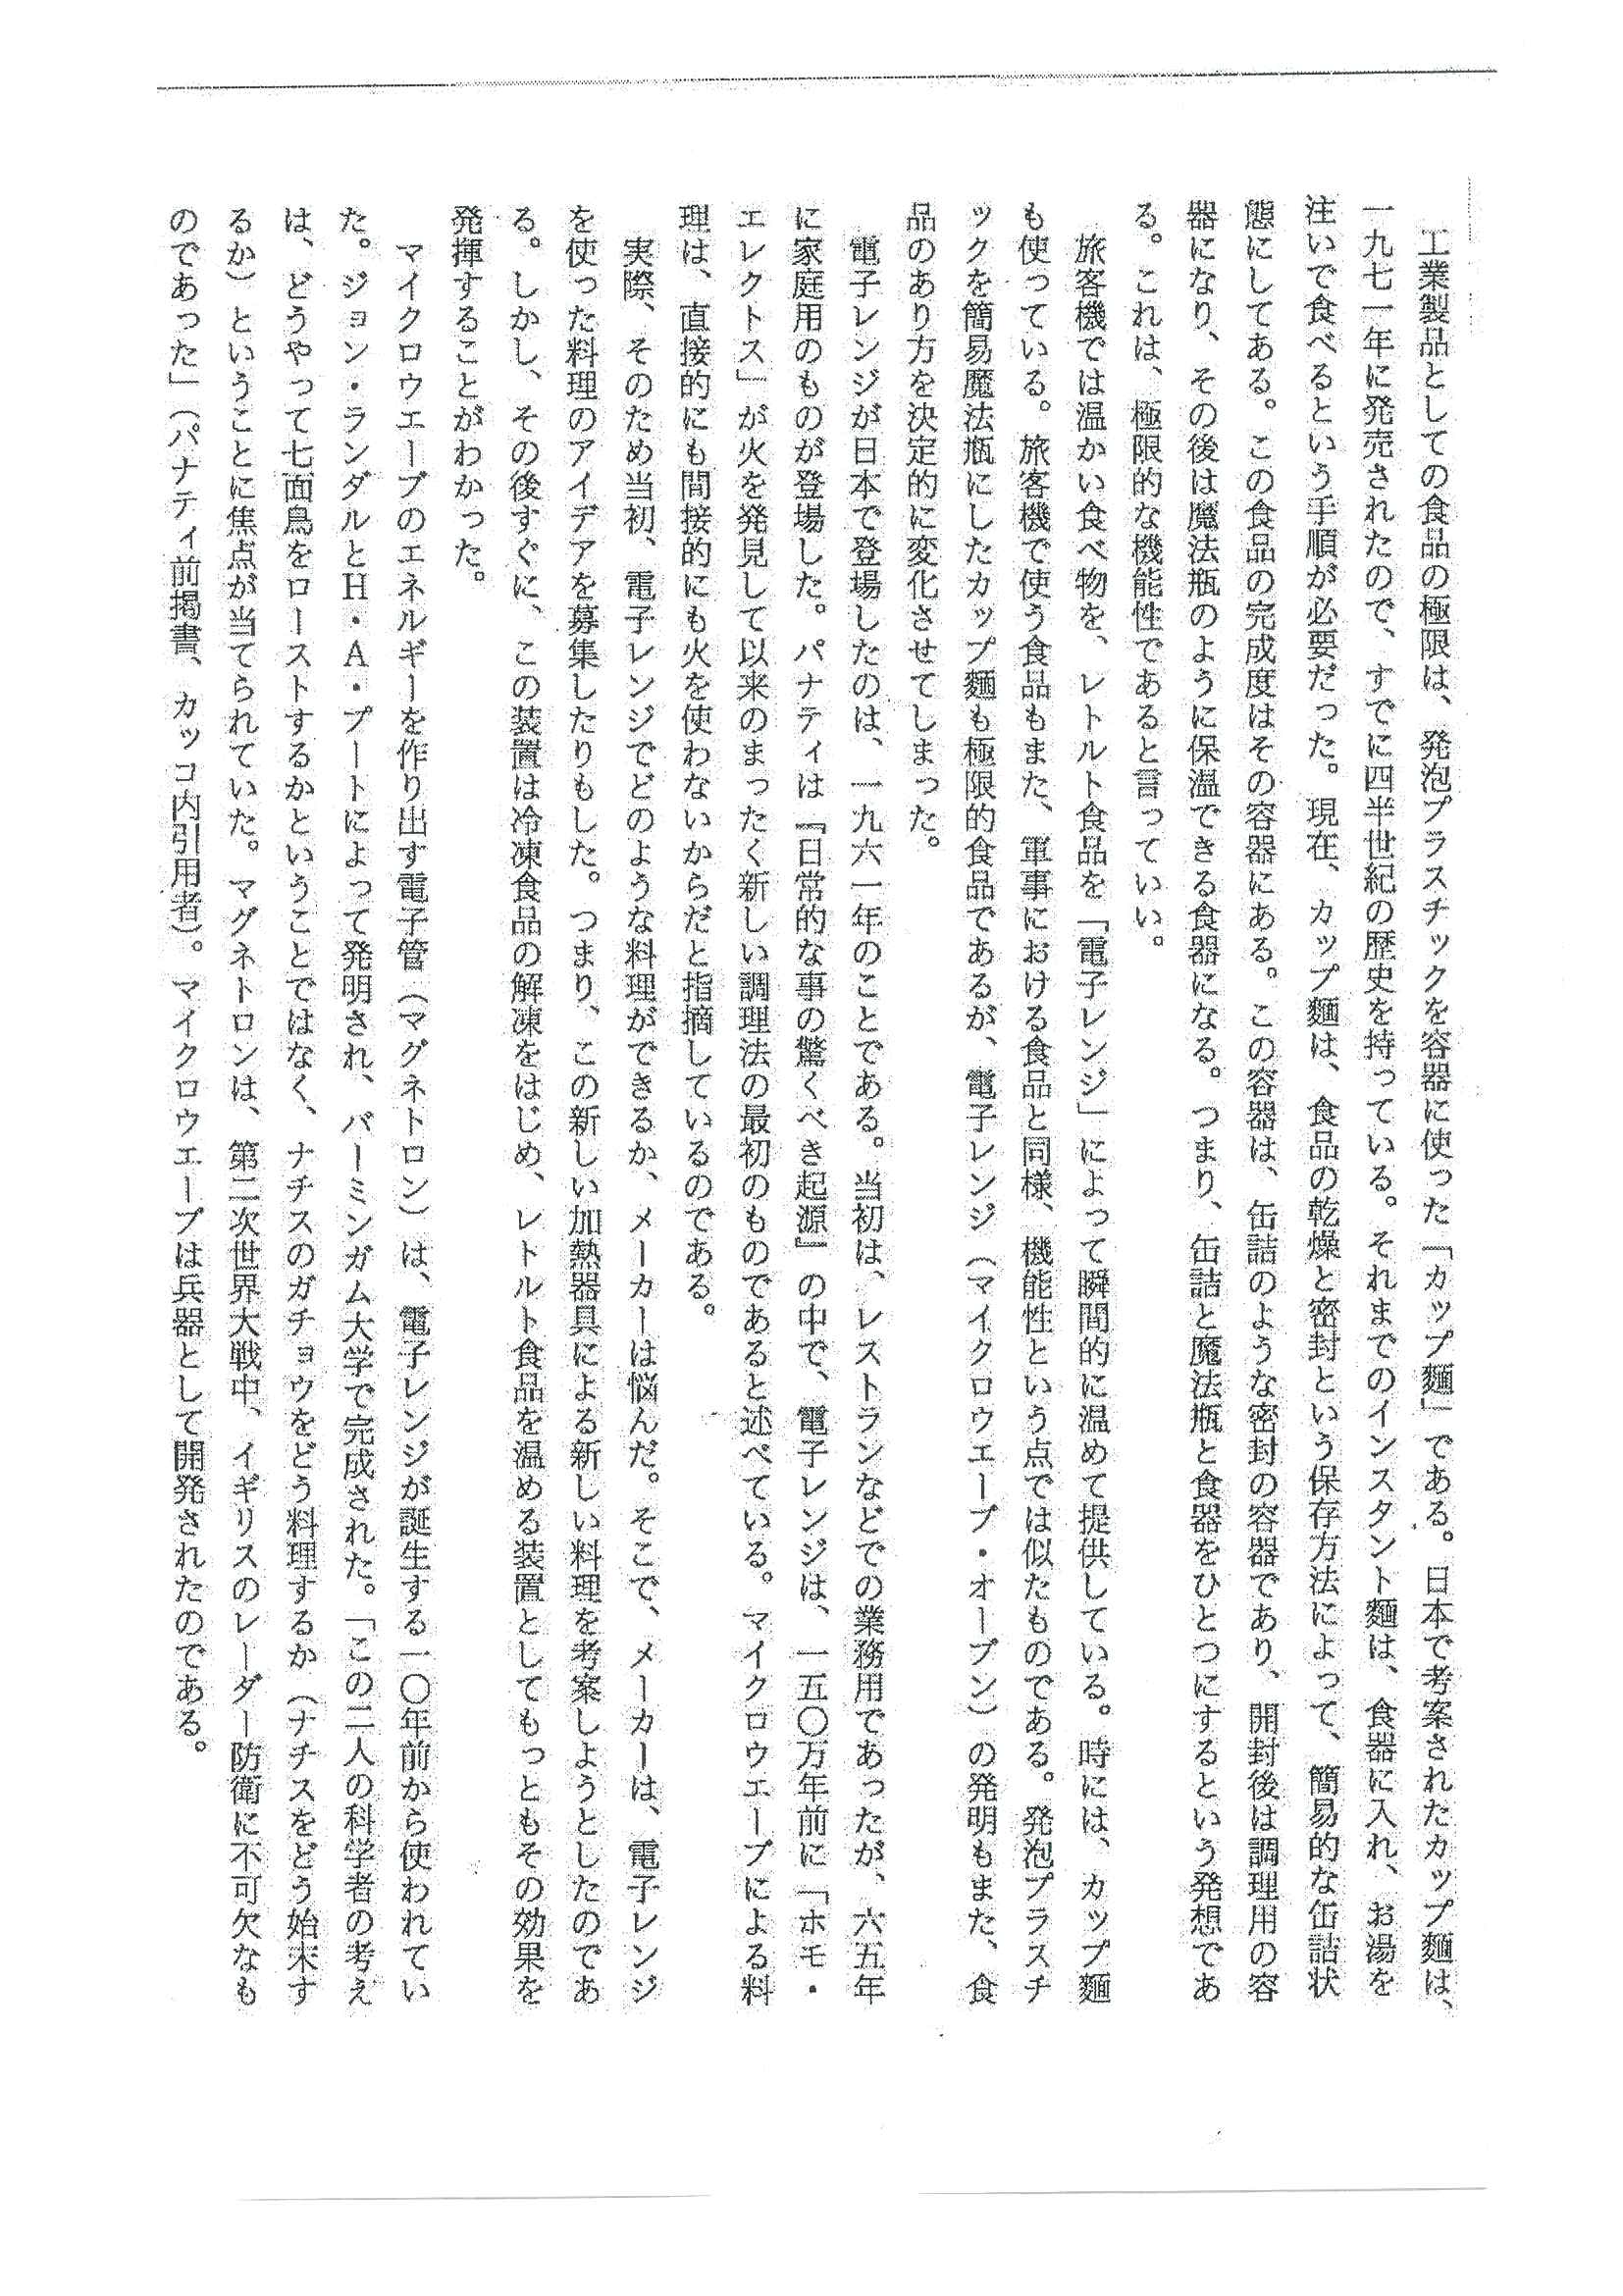 工業製品としての食品の極限は、発泡プラスチックを容器に使った「カップ麵」である。日本で考案されたカップ麵は、
一九七一年に発売されたので、すでに四半世紀の歴史を持っている。それまでのインスタント麵は、食器に入れ、お湯を
注いで食べるという手順が必要だった。現在、カップ麵は、食品の乾燥と密封という保存方法によって、簡易的な缶詰状
態にしてある。この食品の完成度はその容器にある。この容器は、缶詰のような密封の容器であり、開封後は調理用の容
器になり、その後は魔法瓶のように保温できる食器になる。つまり、缶詰と魔法瓶と食器をひとつにするという発想であ
る。これは、極限的な機能性であると言っていい。
　旅客機では温かい食べ物を、レトルト食品を「電子レンジ」によって瞬間的に温めて提供している。時には、カップ麵
も使っている。旅客機で使う食品もまた、軍事における食品と同様、機能性という点では似たものである。発泡プラスチ
ックを簡易魔法瓶にしたカップ麵も極限的食品であるが、電子レンジ（マイクロウエーブ・オーブン）の発明もまた、食
品のあり方を決定的に変化させてしまった。
　電子レンジが日本で登場したのは、一九六一年のことである。当初は、レストランなどでの業務用であったが、六五年
に家庭用のものが登場した。パナティは『日常的な事の驚くべき起源』の中で、電子レンジは、一五〇万年前に「ホモ・
エレクトス」が火を発見して以来のまったく新しい調理法の最初のものであると述べている。マイクロウエーブによる料
理は、直接的にも間接的にも火を使わないからだと指摘しているのである。
　実際、そのため当初、電子レンジでどのような料理ができるか、メーカーは悩んだ。そこで、メーカーは、電子レンジ
を使った料理のアイデアを募集したりもした。つまり、この新しい加熱器具による新しい料理を考案しようとしたのであ
る。しかし、その後すぐに、この装置は冷凍食品の解凍をはじめ、レトルト食品を温める装置としてもっともその効果を
発揮することがわかった。
　マイクロウエーブのエネルギーを作り出す電子管（マグネトロン）は、電子レンジが誕生する一〇年前から使われてい
た。ジョン・ランダルとH・A・プートによって発明され、バーミンガム大学で完成された。「この二人の科学者の考え
は、どうやって七面鳥をローストするかということではなく、ナチスのガチョウをどう料理するか（ナチスをどう始末す
るか）ということに焦点が当てられていた。マグネトロンは、第二次世界大戦中、イギリスのレーダー防衛に不可欠なも
のであった」（パナティ前掲書、カッコ内引用者）。マイクロウエーブは兵器として開発されたのである。